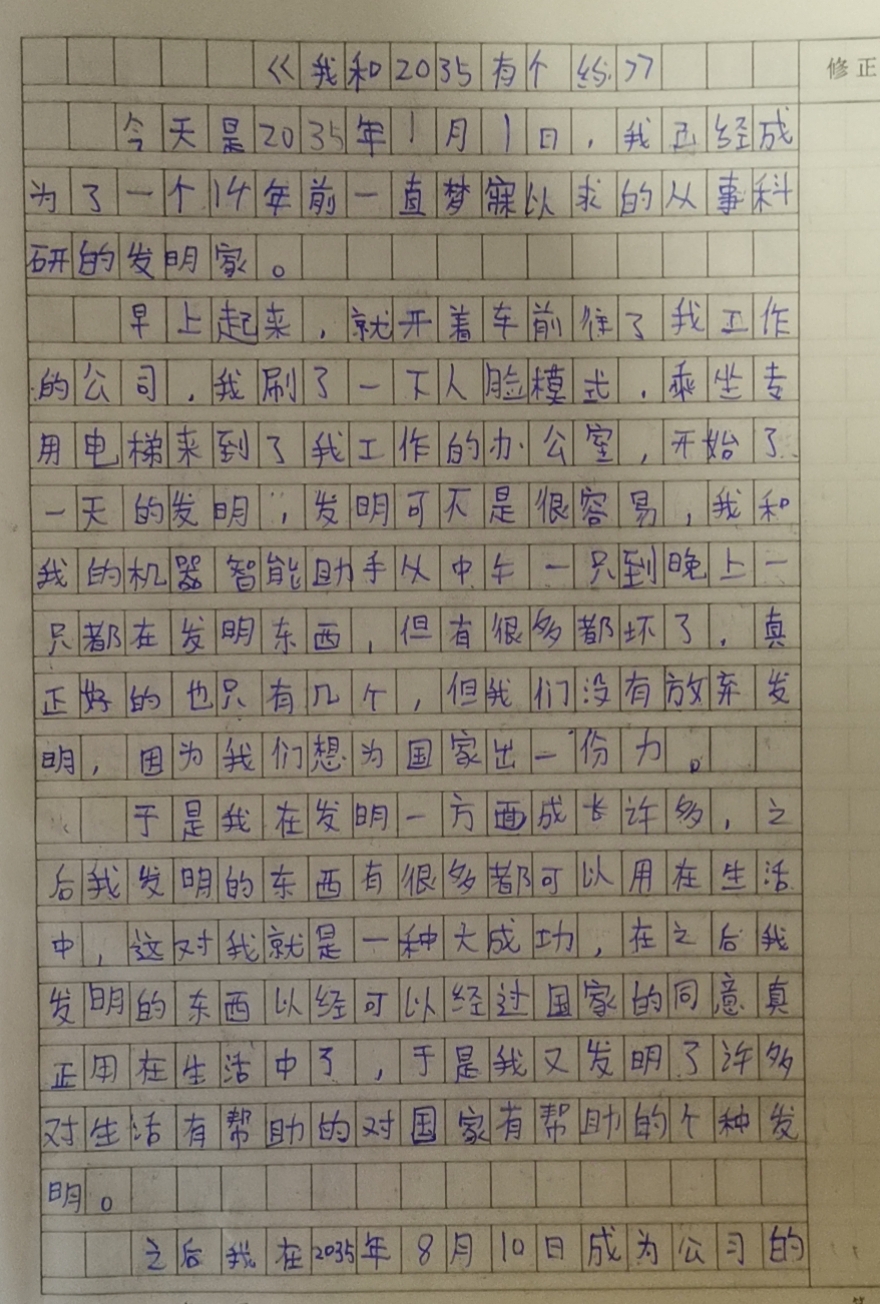 《我和2035有个约》
修正
今天是2035年1月1日，我已经成
为了一个14年前一直梦寐以求的从事科
研的发明家。
早上起来，就开着车前往了我工作
的公司，我刷了一下人脸模式，乘坐专
用电梯来到了我工作的办公室，开始了
一天的发明，发明可不是很容易，我和
我的机器智能助手从中午一只到晚上一
只都在发明东西，但有很多都坏了，真
正好的也只有几个，但我们没有放弃发
明，因为我们想为国家出一份力。
于是我在发明一方面成长许多，之
后我发明的东西有很多都可以用在生活
中，这对我就是一种大成功，在之后我
发明的东西以经可以经过国家的同意真
正用在生活中了，于是我又发明了许多
对生活有帮助的对国家有帮助的个种发
明。
之后我在2035年8月10日成为公司的